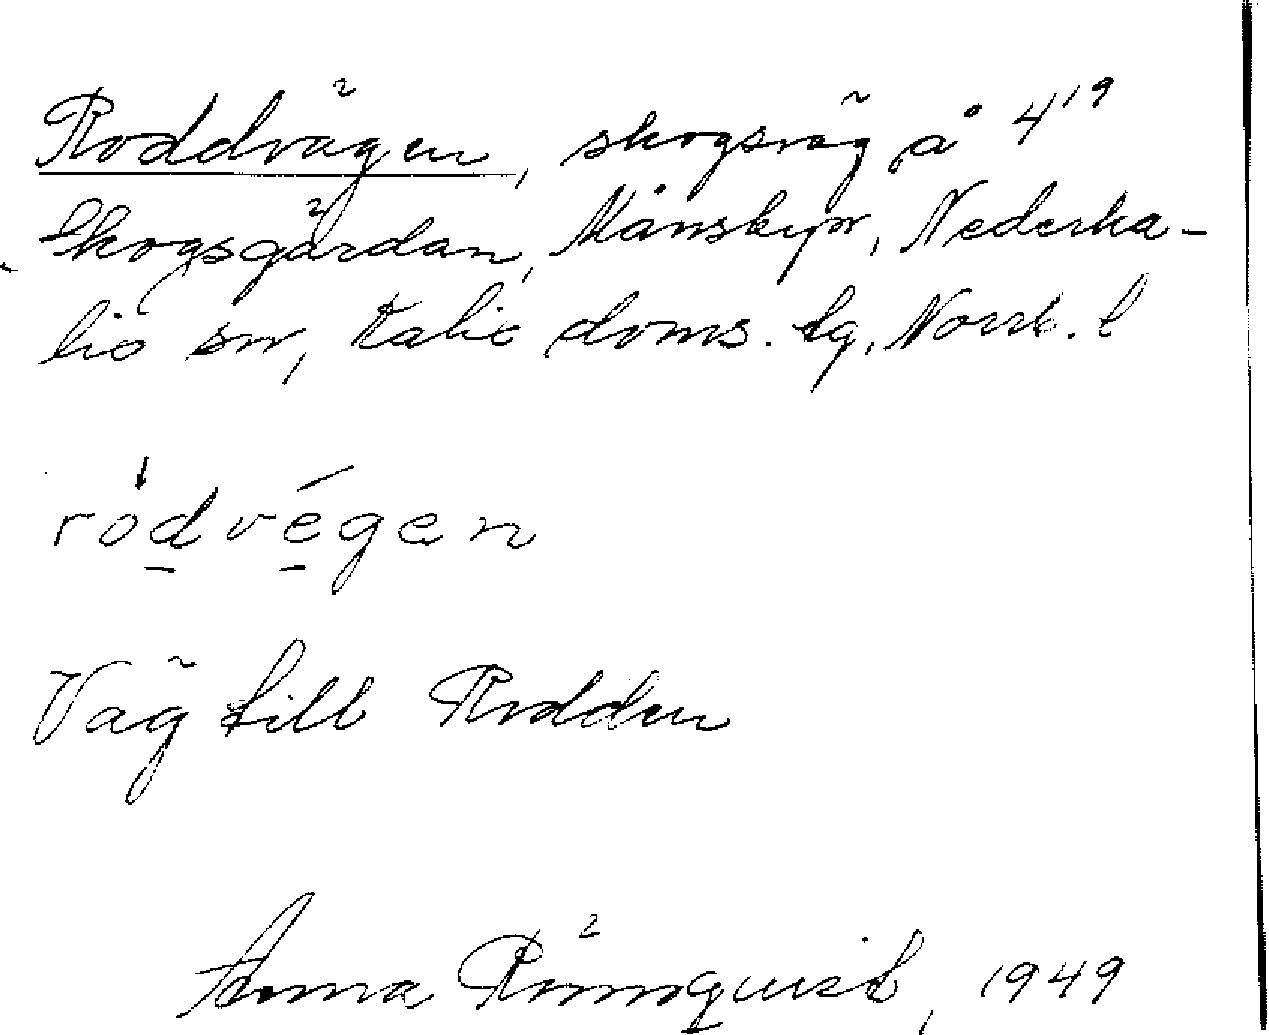 Roddvägen, skogsväg å 4¹⁹
Skogsgärdan, Månsbyn, Nederka-
lix sn, Kalix doms. lg, Norrb. l
rodvégen
Väg till Rodden
Anna Rönnquist, 1949